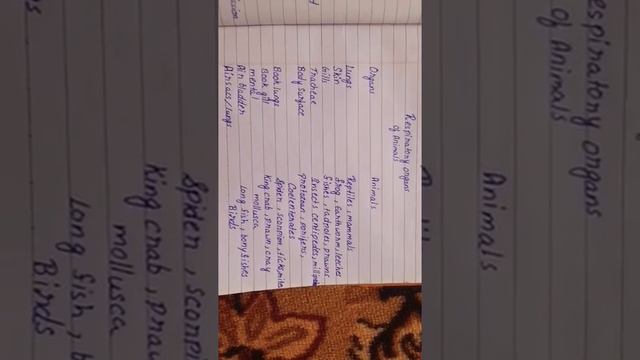 Respiratory organs
of Animals
Organs Animals
Lungs Reptiles, mammals
Skin Frog, Earthworm, Leeches
Gills Fishes, tadpoles, prawns
Tracheae Insects centipedes, millipede
Body surface Protozoan, porifers,
Coelenterates
Book lungs Spider, scorpion, ticks, mites
Book gill King crab, prawn, cray
mental mollusca
Air bladder Long fish, bony fishes
Airsacs/lungs Birds
espiratory organs
of Animals
Animals
Spider, scorp
King crab, praw
mollusca
Long fish, b
Birds